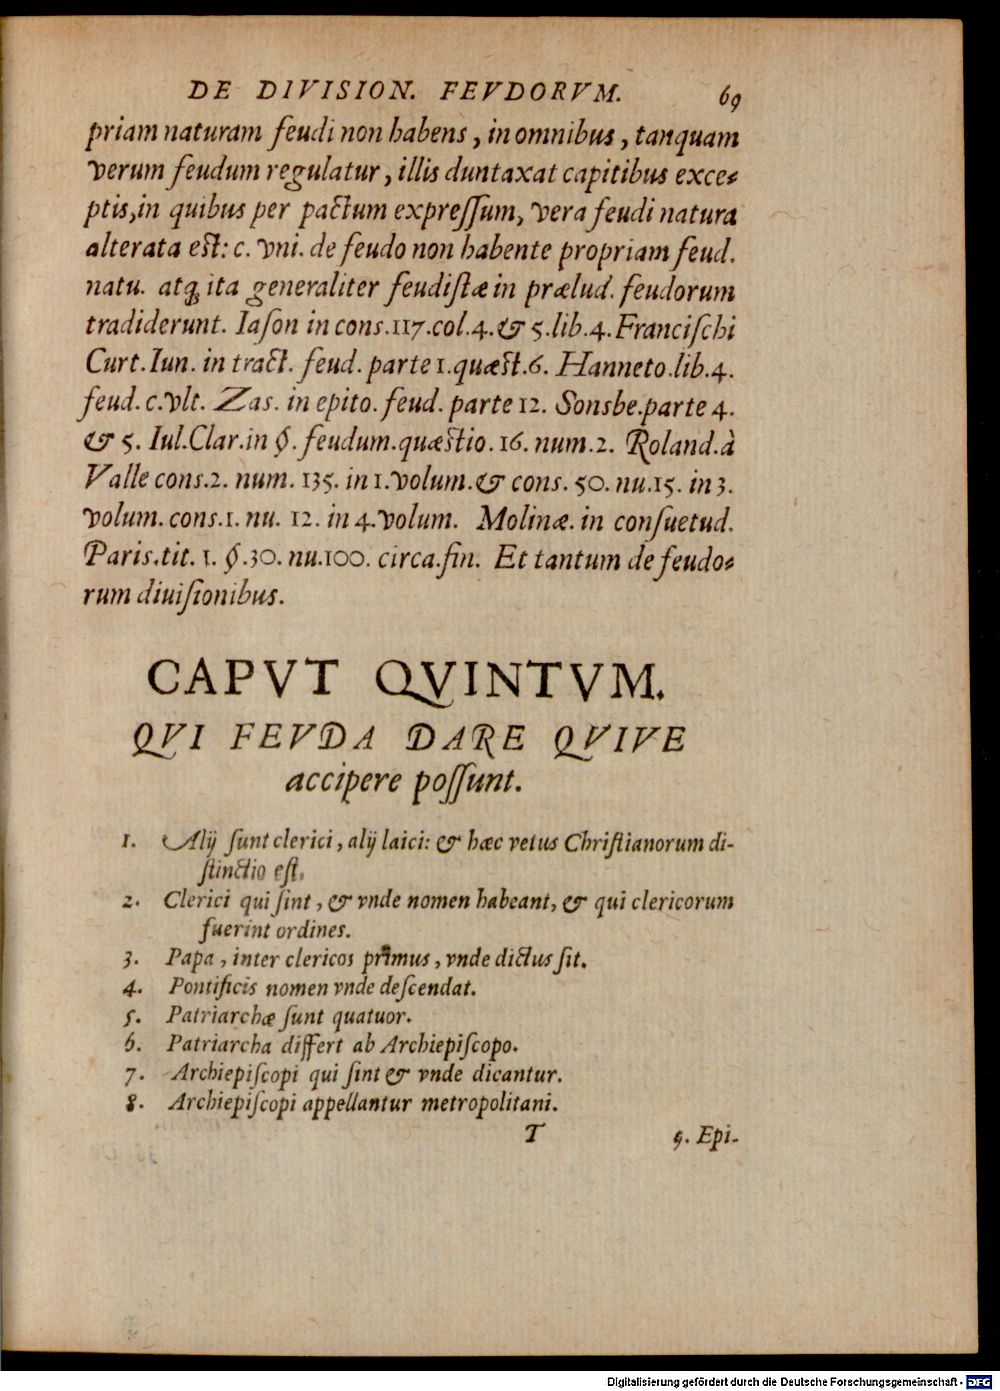 DE DIVISION. FEVDORVM. 69
priam naturam feudi non habens, in omnibus, tanquam
verum feudum regulatur, illis duntaxat capitibus exce-
ptis, in quibus per pactum expreſſum, vera feudi natura
alterata eſt: c. vni. de feudo non habente propriam feud.
natu. atq; ita generaliter feudiſtæ in prælud. feudorum
tradiderunt. Iaſon in cons.117.col.4.& 5.lib.4. Franciſchi
Curt. Iun. in tract. feud. parte 1.quæſt.6. Hanneto.lib.4.
feud. c.vlt. Zas. in epito. feud. parte 12. Sonsbe.parte 4.
& 5. Iul.Clar.in §. feudum.quæſtio. 16. num.2. Roland.à
Valle cons.2. num. 135. in 1.volum.& cons. 50. nu.15. in 3.
volum. cons.1. nu. 12. in 4.volum. Molinæ. in conſuetud.
Paris.tit. 1. §.30. nu.100. circa.fin. Et tantum de feudo-
rum diuiſionibus.
CAPVT QVINTVM.
QVI FEVDA DARE QVIVE
accipere poſſunt.
1. Alij ſunt clerici, alij laici: & hæc vetus Chriſtianorum di-
ſtinctio eſt.
2. Clerici qui ſint, & vnde nomen habeant, & qui clericorum
fuerint ordines.
3. Papa, inter clericos primus, vnde dictus ſit.
4. Pontificis nomen vnde deſcendat.
5. Patriarchæ ſunt quatuor.
6. Patriarcha differt ab Archiepiſcopo.
7. Archiepiſcopi qui ſint & vnde dicantur.
8. Archiepiſcopi appellantur metropolitani.
T 9. Epi-
Digitalisierung gefördert durch die Deutsche Forschungsgemeinschaft - DFG